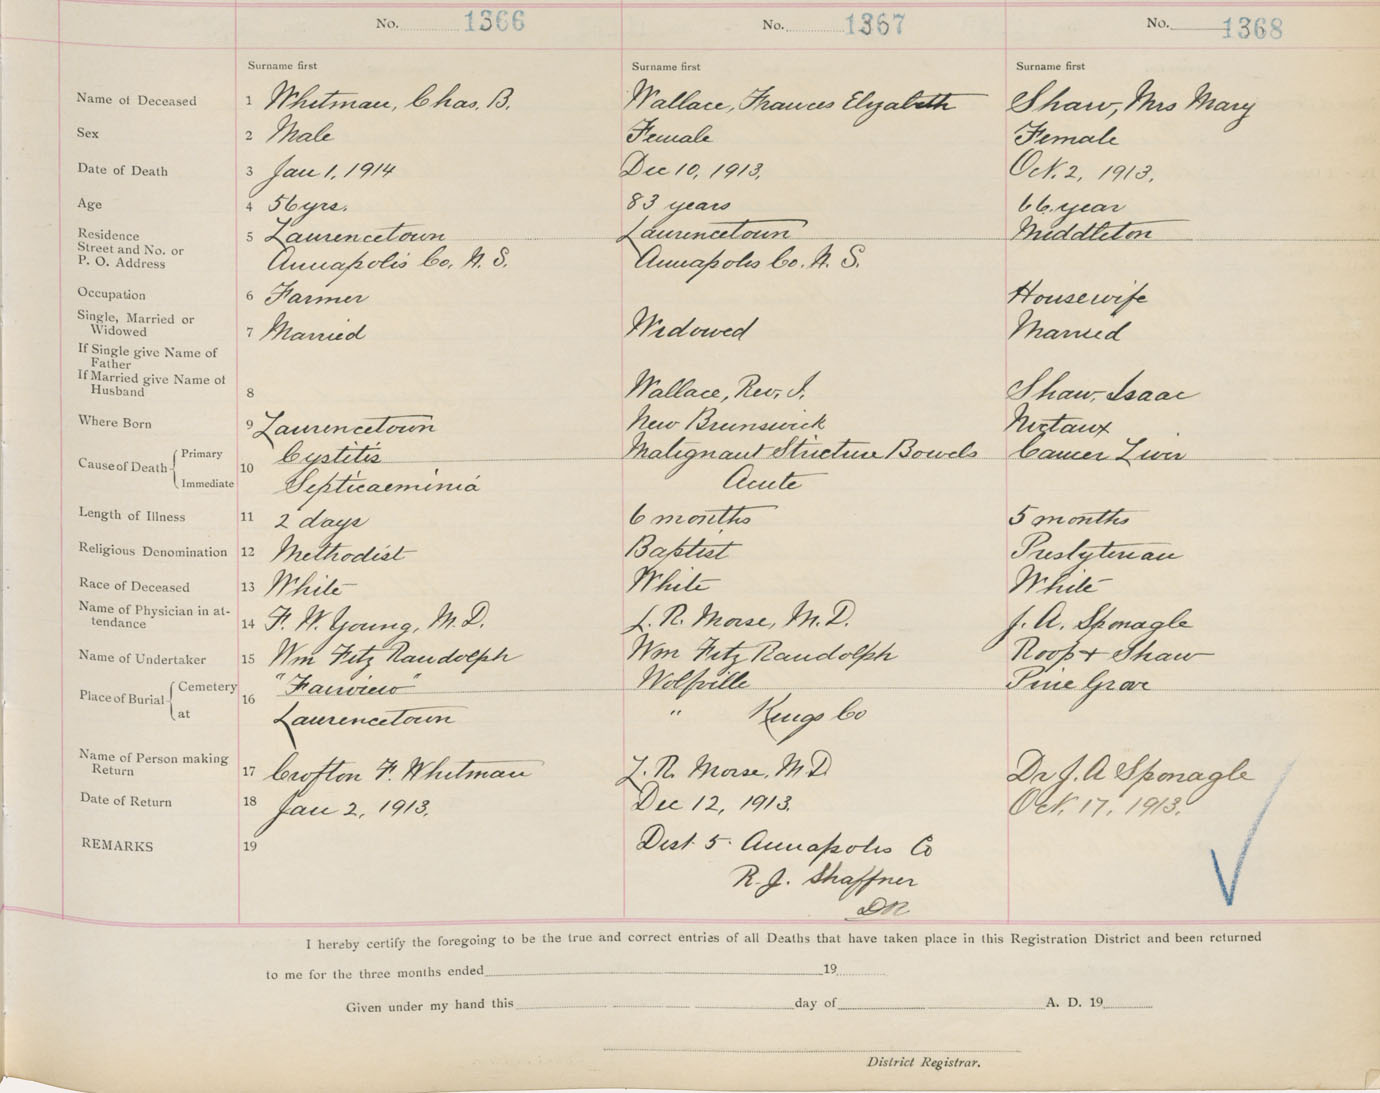 No. 1366 No. 1367 No. 1368
Surname first Surname first Surname first
Name of Deceased 1 Whitman, Chas. B. Wallace, Frances Elizabeth Shaw, Mrs Mary
Sex 2 Male Female Female
Date of Death 3 Jan 1, 1914 Dec 10, 1913. Oct. 2, 1913.
Age 4 56 yrs. 83 years 66 year
Residence 5 Laurencetown Laurencetown Middleton
Street and No. or
P. O. Address Annapolis Co. N. S. Annapolis Co. N. S.
Occupation 6 Farmer Housewife
Single, Married or
Widowed 7 Married Widowed Married
If Single give Name of
Father
If Married give Name of
Husband 8 Wallace, Rev. I. Shaw, Isaac
Where Born 9 Laurencetown New Brunswick Nictaux
Cause of Death 10 Primary Cystitis Malignant Stricture Bowels Cancer Liver
Immediate Septicaeminia Acute
Length of Illness 11 2 days 6 months 5 months
Religious Denomination 12 Methodist Baptist Presbyterian
Race of Deceased 13 White White White
Name of Physician in at-
tendance 14 F. W. Young, M. D. L. R. Morse, M. D. J. A. Sponagle
Name of Undertaker 15 Wm Fitz Randolph Wm Fitz Randolph Roop + Shaw
Place of Burial 16 Cemetery "Fairview" Wolfville Pine Grove
at Laurencetown " Kings Co
Name of Person making
Return 17 Crofton F. Whitman L. R. Morse, M. D Dr J. A Sponagle
Date of Return 18 Jan 2, 1913. Dec 12, 1913. Oct. 17, 1913.
REMARKS 19 Dist 5 Annapolis Co
R. J. Shaffner
DR
I hereby certify the foregoing to be the true and correct entries of all Deaths that have taken place in this Registration District and been returned
to me for the three months ended 19
Given under my hand this day of A. D. 19
District Registrar.